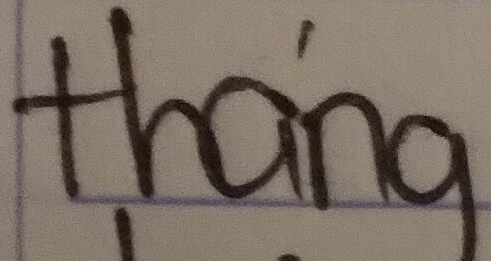 tháng